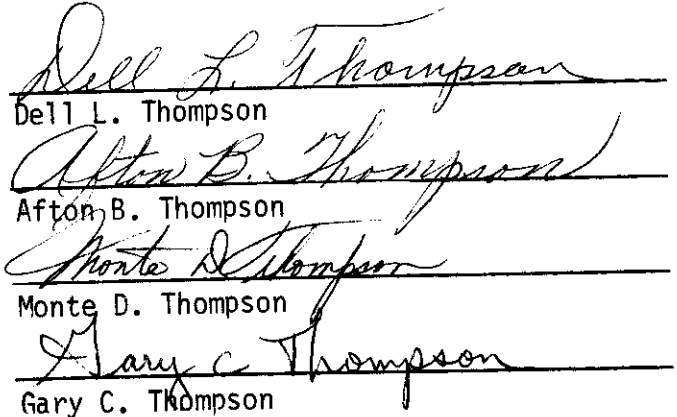 Dell L. Thompson
Dell L. Thompson
Afton B. Thompson
Afton B. Thompson
Monte D Thompson
Monte D. Thompson
Gary C Thompson
Gary C. Thompson